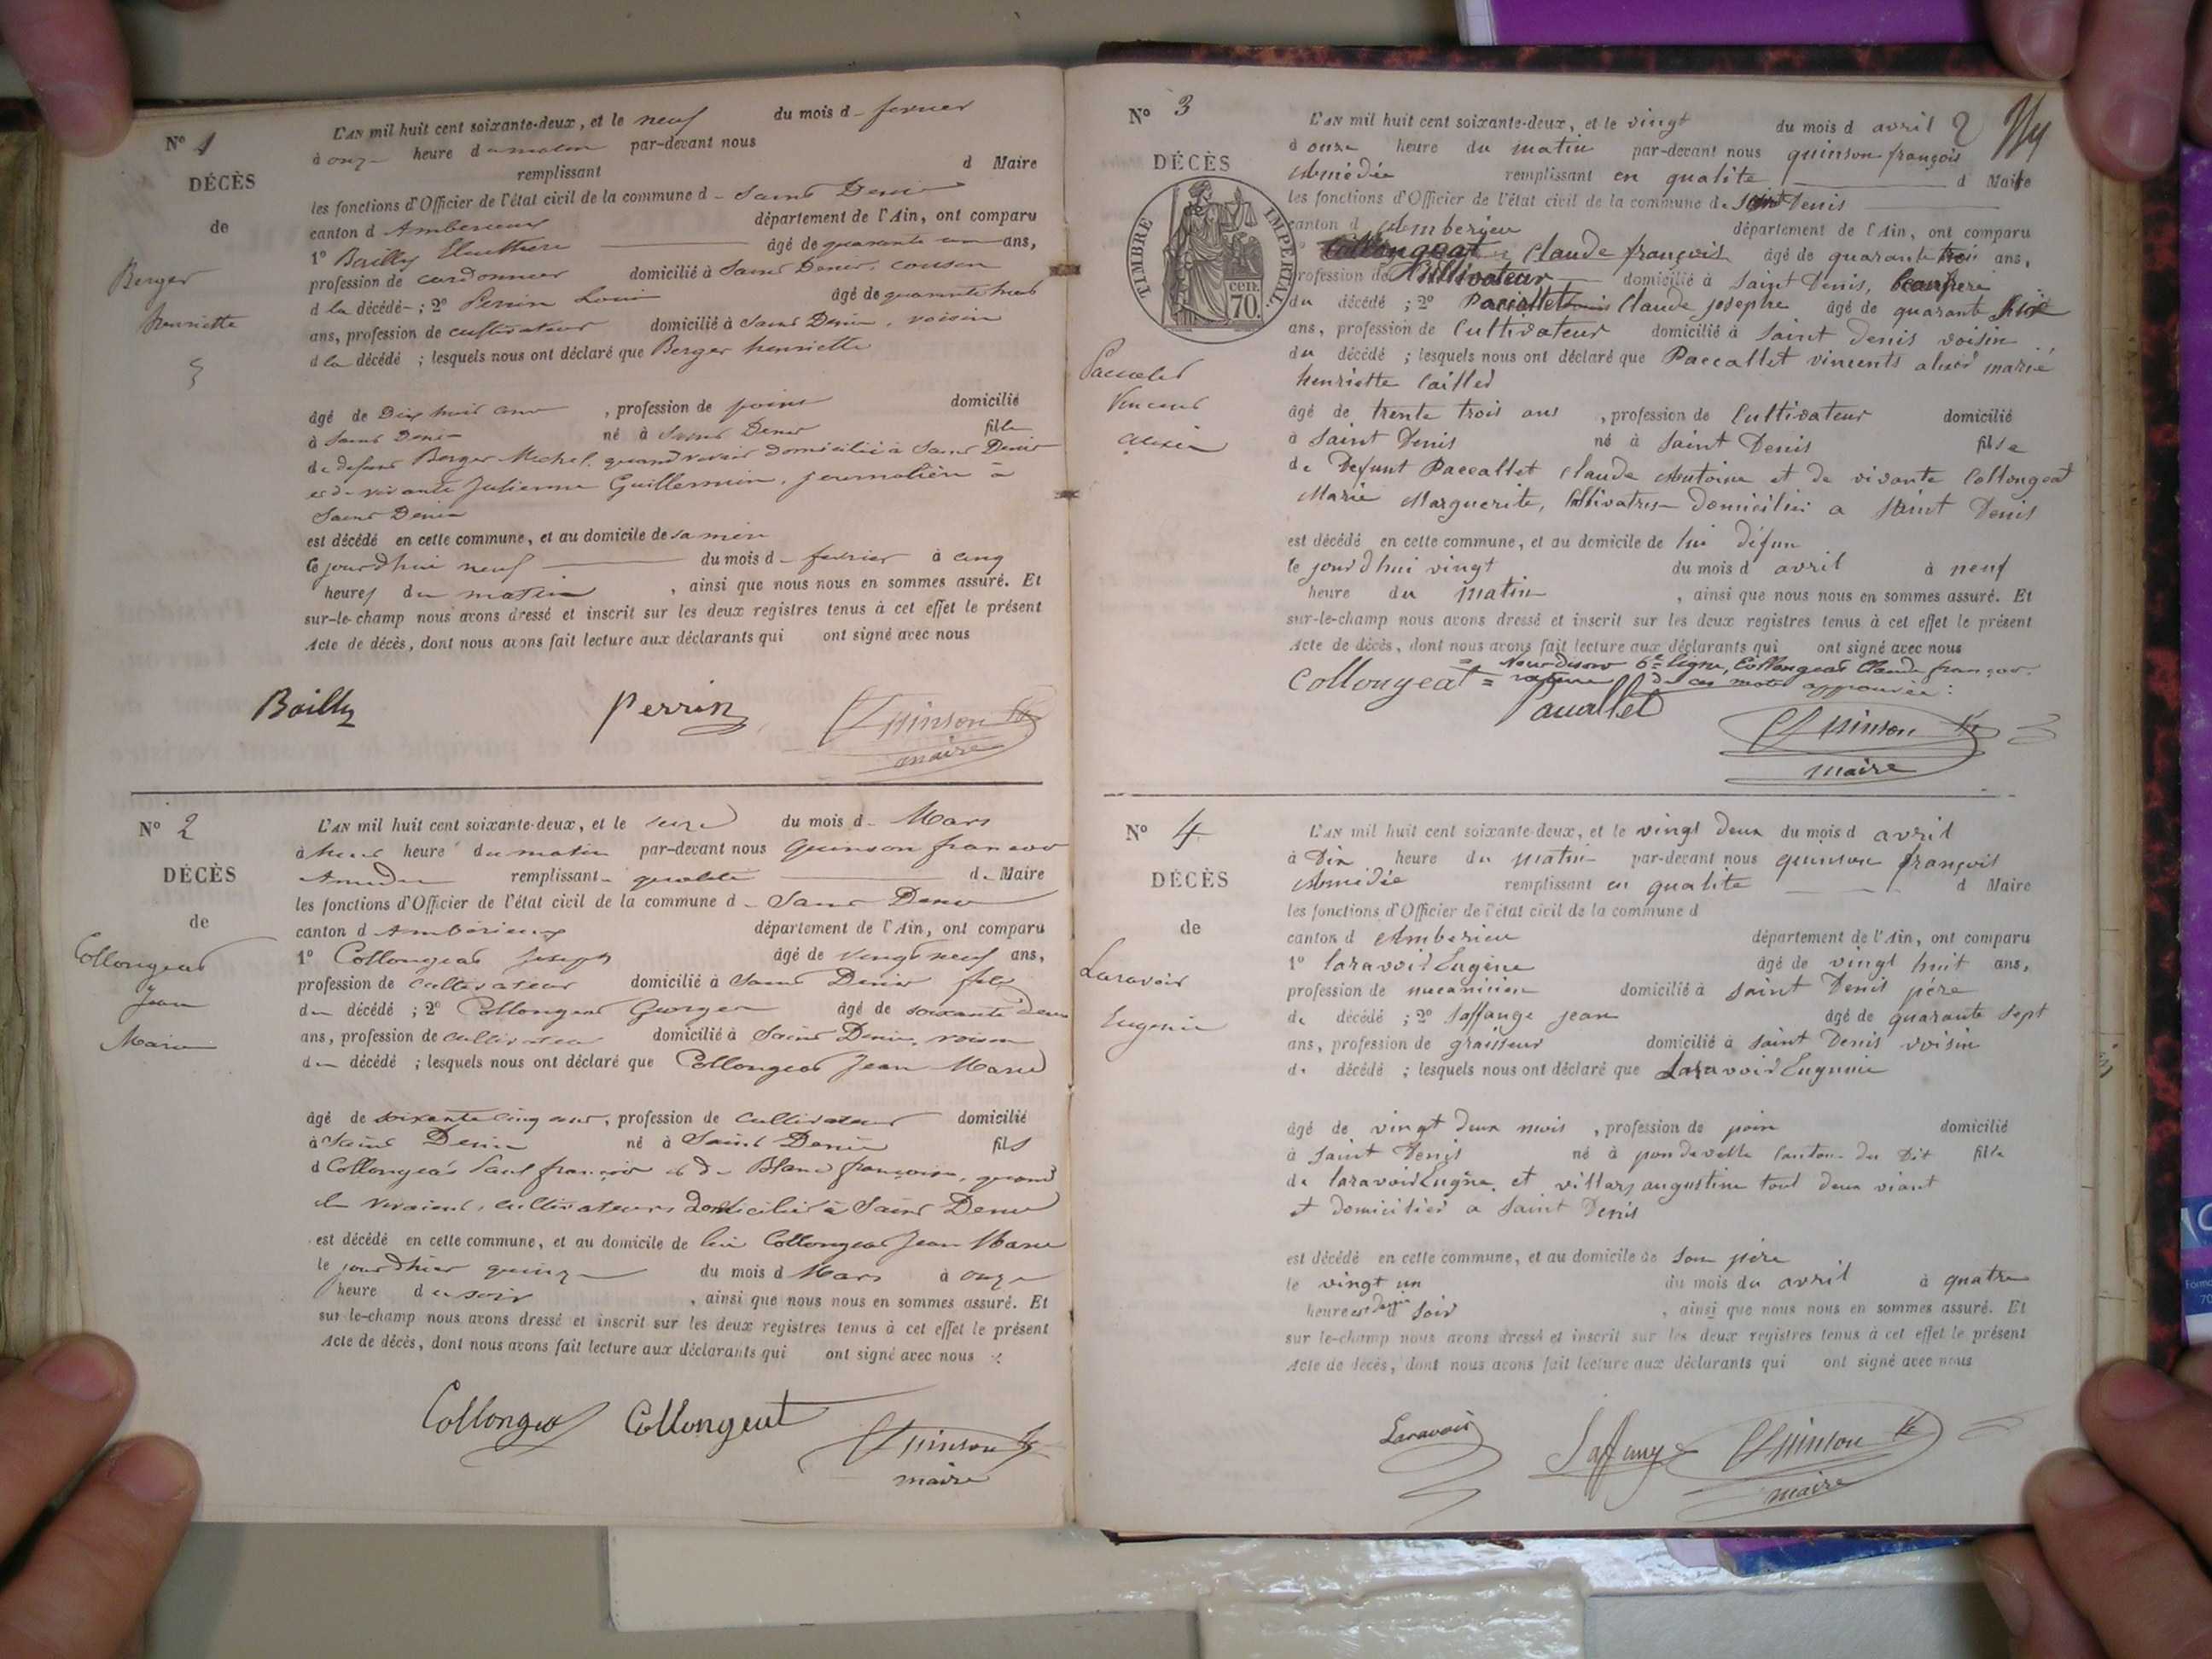 N° 1
DÉCÈS
de
Berger
henriette
L'AN mil huit cent soixante-deux, et le neuf du mois d fevrier
à onze heure du matin par-devant nous
remplissant d Maire
les fonctions d'Officier de l'état civil de la commune d Saint Denis
canton d Amberieux département de l'Ain, ont comparu
1° Bailly Eleuthere âgé de quarante un ans,
profession de cordonnier domicilié à Saint Denis, cousin
d la décédé ; 2° Perrin Louis âgé de quarante huit
ans, profession de cultivateur domicilié à Saint Denis, voisin
d la décédé ; lesquels nous ont déclaré que Berger henriette
âgé de Dix huit ans , profession de point domicilié
à Saint Denis né à Saint Denis fille
de defunt Berger Michel, quand vivait domicilié à Saint Denis
et de vivante Julienne Guillermin, journalière à
Saint Denis
est décédé en cette commune, et au domicile de sa mère
ce jourdhui neuf du mois d fevrier à cinq
heures du matin , ainsi que nous nous en sommes assuré. Et
sur-le-champ nous avons dressé et inscrit sur les deux registres tenus à cet effet le présent
Acte de décès, dont nous avons fait lecture aux déclarants qui ont signé avec nous
Bailly Perrin Quinson
maire
N° 2
DÉCÈS
de
Collongeat
Jean
Marie
L'AN mil huit cent soixante-deux, et le seize du mois d Mars
à huit heure du matin par-devant nous Quinson francois
Amedee remplissant qualité d. Maire
les fonctions d'Officier de l'état civil de la commune d Saint Denis
canton d Ambérieux département de l'Ain, ont comparu
1° Collongeat Joseph âgé de vingt neuf ans,
profession de cultivateur domicilié à Saint Denis fils
du décédé ; 2° Collongeat Georges âgé de soixante deux
ans, profession de cultivateur domicilié à Saint Denis, voisin
du décédé ; lesquels nous ont déclaré que Collongeat Jean Marie
âgé de soixante cinq ans, profession de cultivateur domicilié
à Saint Denis né à Saint Denis fils
d Collongeat françois et de Blanc françoise, quand
ils vivaient, cultivateurs domicilié à Saint Denis
est décédé en cette commune, et au domicile de lui Collongeat Jean Marie
le jourdhier quinze du mois d Mars à onze
heure du soir , ainsi que nous nous en sommes assuré. Et
sur-le-champ nous avons dressé et inscrit sur les deux registres tenus à cet effet le présent
Acte de décès, dont nous avons fait lecture aux déclarants qui ont signé avec nous
Collongeat Collongeat Quinson
maire
N° 3
DÉCÈS
TIMBRE IMPÉRIAL
70 cen.
Paccalet
Vincent
alexis
L'AN mil huit cent soixante-deux, et le vingt du mois d avril 2
à onze heure du matin par-devant nous quinson françois
Amédée remplissant en qualité d Maire
les fonctions d'Officier de l'état civil de la commune de Saint Denis
canton d Amberieu département de l'Ain, ont comparu
Collongeat Claude françois âgé de quarante trois ans,
profession de Cultivateur domicilié à Saint Denis, beaufrere
du décédé ; 2° Paccallet Claude josephe âgé de quarante six
ans, profession de Cultivateur domicilié à Saint Denis voisin
du décédé ; lesquels nous ont déclaré que Paccallet vincents alexis marié
henriette Cailled
âgé de trente trois ans , profession de Cultivateur domicilié
à Saint Denis né à Saint Denis fils
de Defunt Paccallet Claude Antoine et de vivante Collongeat
Marie Marguerite, Cultivatrice Domicilié a Saint Denis
est décédé en cette commune, et au domicile de lui défun
le jourdhui vingt du mois d avril à neuf
heure du matin , ainsi que nous nous en sommes assuré. Et
sur-le-champ nous avons dressé et inscrit sur les deux registres tenus à cet effet le présent
Acte de décès, dont nous avons fait lecture aux déclarants qui ont signé avec nous
Nous disons 6e ligne, Collongeat Claude françois
Collongeat = rature de ces mots approuvée :
Pacallet
Quinson
maire
N° 4
DÉCÈS
de
Laravoir
Eugenie
L'AN mil huit cent soixante-deux, et le vingt deux du mois d avril
à Dix heure du matin par-devant nous quinson françois
Amédée remplissant en qualité d Maire
les fonctions d'Officier de l'état civil de la commune d
canton d Amberieu département de l'Ain, ont comparu
1° Laravoir Eugène âgé de vingt huit ans,
profession de mecanicien domicilié à Saint Denis père
de décédé ; 2° Saffange jean âgé de quarante sept
ans, profession de graisseur domicilié à Saint Denis voisin
d. décédé ; lesquels nous ont déclaré que Laravoir Eugenie
âgé de vingt deux mois , profession de poin domicilié
à Saint Denis né à pondeville Canton du Dit fille
de laravoir Eugène et villars augustine tout deux viant
et domiciliés a Saint Denis
est décédé en cette commune, et au domicile de Son père
le vingt un du mois du avril à quatre
heure et demie d Soir , ainsi que nous nous en sommes assuré. Et
sur-le-champ nous avons dressé et inscrit sur les deux registres tenus à cet effet le présent
Acte de décès, dont nous avons fait lecture aux déclarants qui ont signé avec nous
Laravoir Saffange Quinson
maire